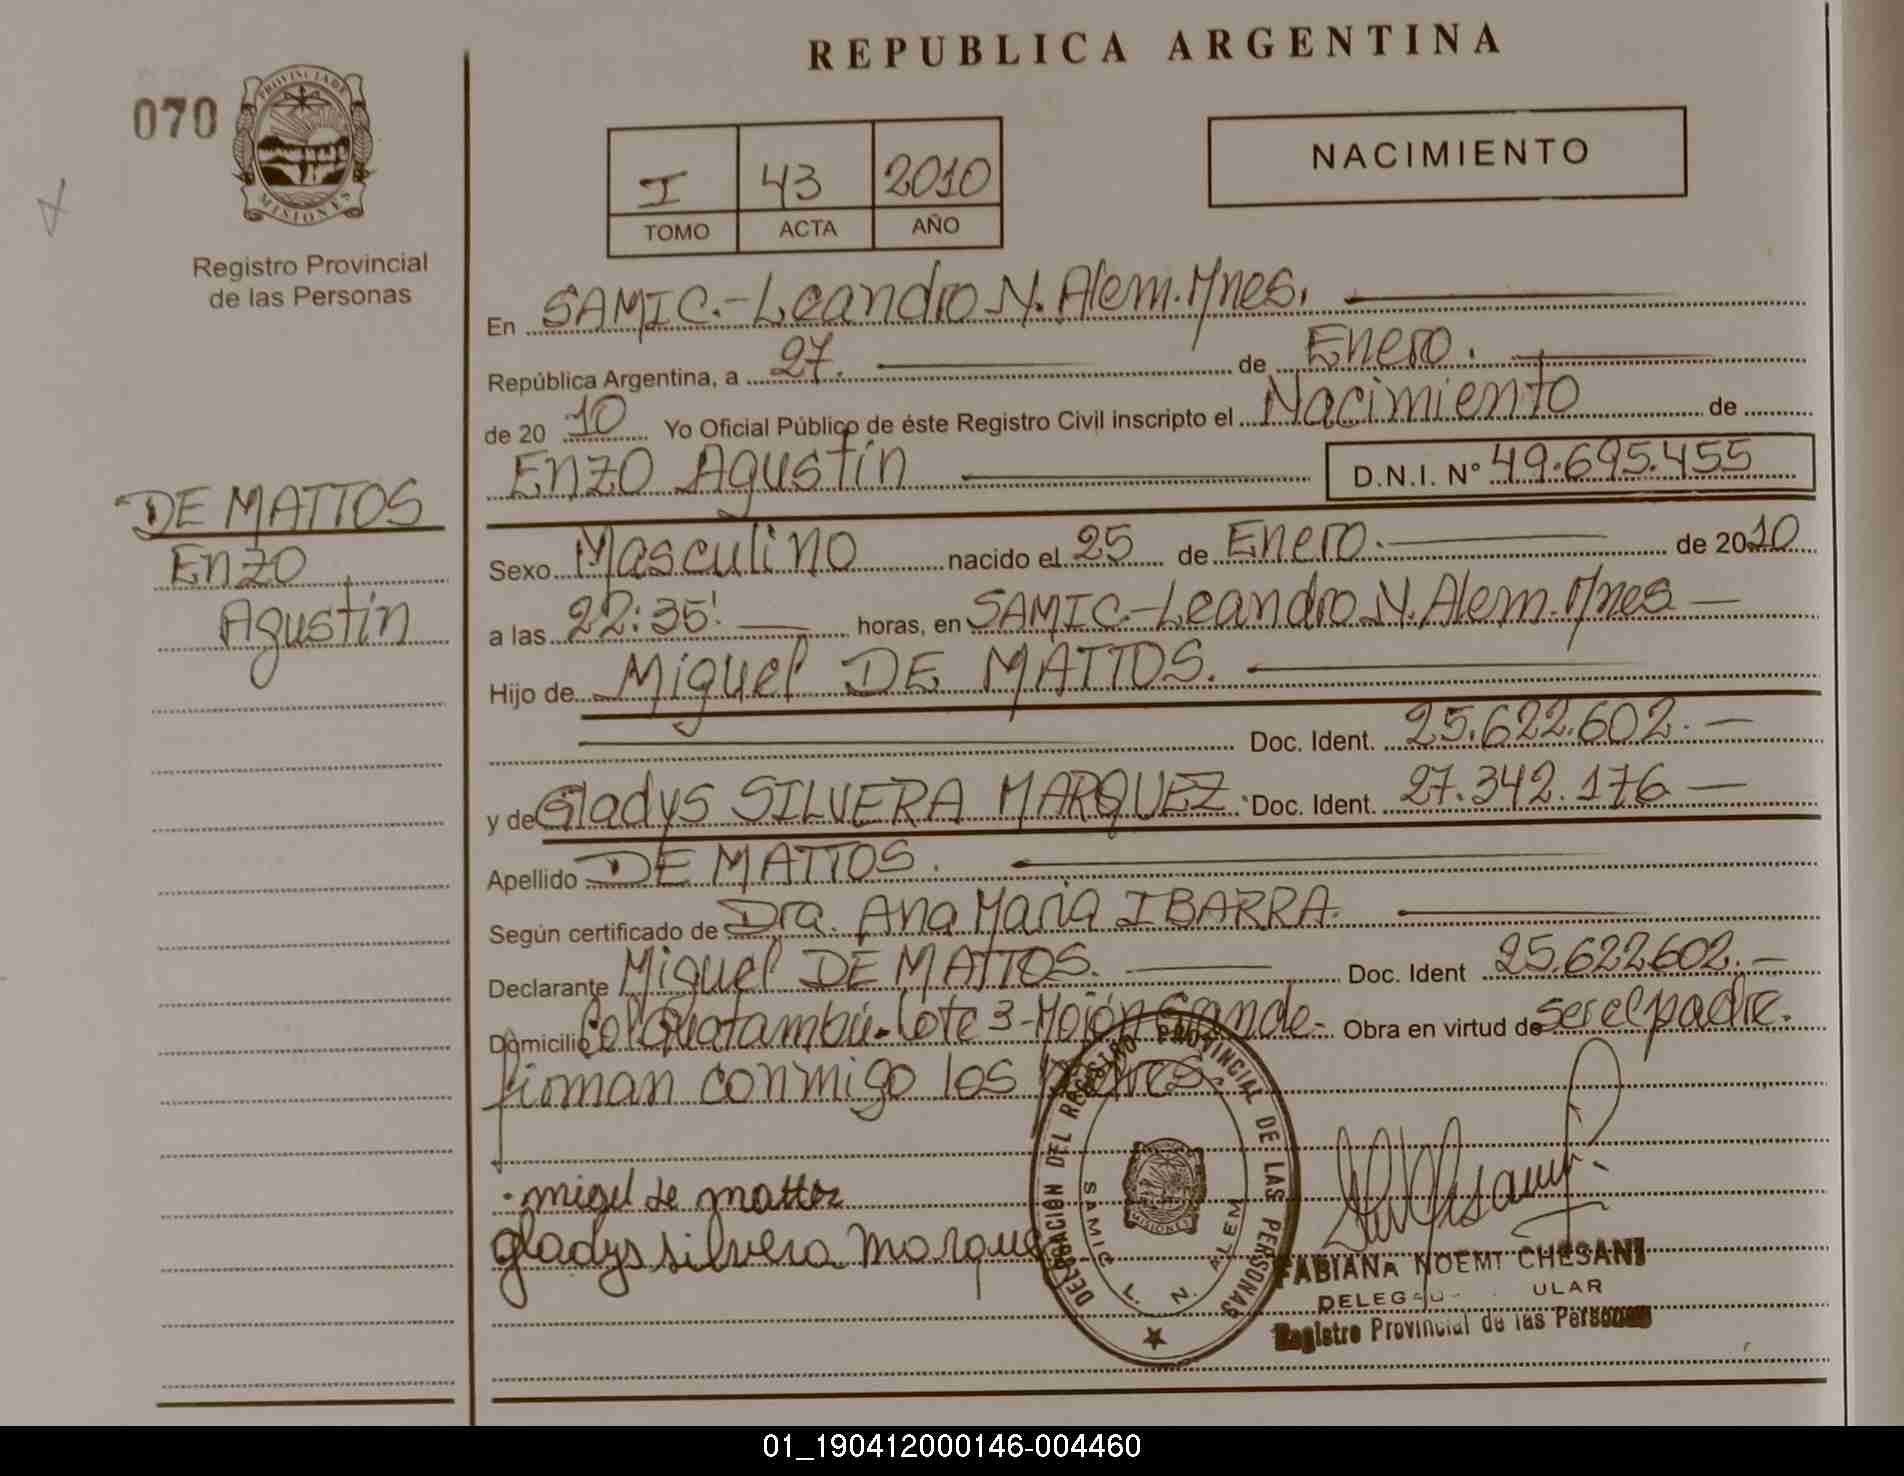 REPUBLICA ARGENTINA
070
PROVINCIA DE
MISIONES
Registro Provincial
de las Personas
I 43 2010
TOMO ACTA AÑO
NACIMIENTO
En SAMIC.-Leandro N. Alem. Mnes.
República Argentina, a 27. de Enero.
de 20 10 Yo Oficial Público de éste Registro Civil inscripto el Nacimiento de
Enzo Agustín D.N.I. N° 49.695.455
DE MATTOS
Enzo
Agustín
Sexo Masculino nacido el 25 de Enero. de 2010
a las 22:35' horas, en SAMIC.-Leandro N. Alem. Mnes
Hijo de Miguel DE MATTOS.
Doc. Ident. 25.622.602.
y de Gladys SILVERA MARQUEZ. Doc. Ident. 27.342.176
Apellido DE MATTOS.
Según certificado de Dra. Ana Maria IBARRA.
Declarante Miguel DE MATTOS. Doc. Ident 25.622.602.
Domicilio Col. Guatambú-Lote 3-Mojón Grande- Obra en virtud de ser el padre.
firman conmigo los padres.
migel de mattos
gladys silvera marque
DELEGACION DEL REGISTRO PROVINCIAL DE LAS PERSONAS
SAMIC L. N. ALEM
MISIONES
FABIANA NOEMI CHESANI
Registro Provincial de las Personas
01_190412000146-004460